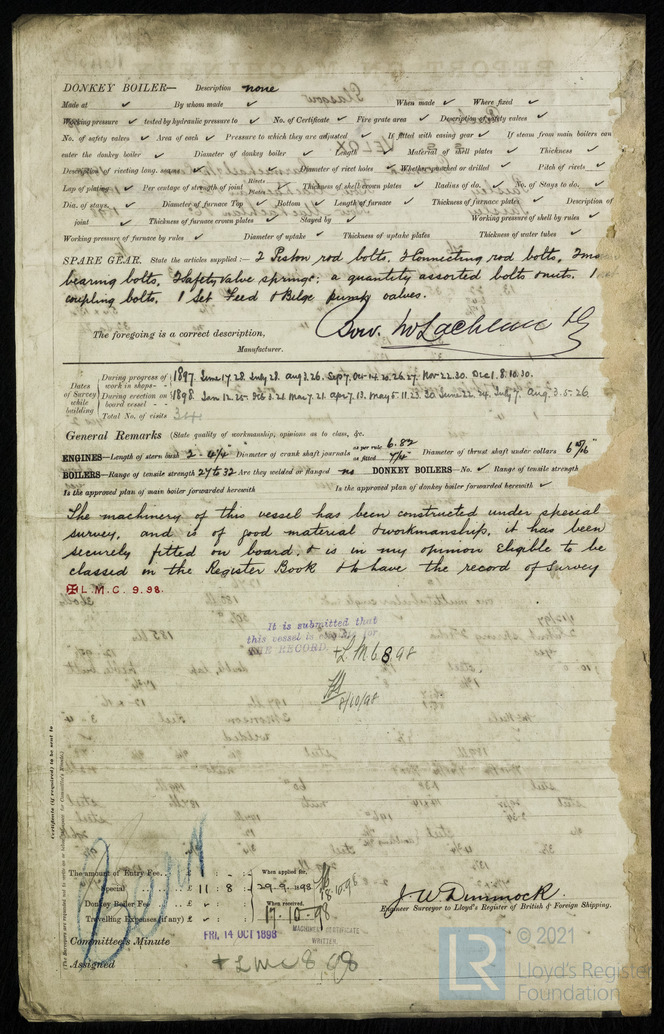 DONKEY BOILER— Description none
Made at ✓ By whom made ✓ When made ✓ Where fixed ✓
Working pressure ✓ tested by hydraulic pressure to ✓ No. of Certificate ✓ Fire grate area ✓ Description of safety valves ✓
No. of safety valves ✓ Area of each ✓ Pressure to which they are adjusted ✓ If fitted with easing gear ✓ If steam from main boilers can
enter the donkey boiler ✓ Diameter of donkey boiler ✓ Length ✓ Material of shell plates ✓ Thickness ✓
Description of riveting long. seams Diameter of rivet holes Whether punched or drilled ✓ Pitch of rivets ✓
Lap of plating ✓ Per centage of strength of joint Rivets Plates Thickness of shell crown plates ✓ Radius of do. ✓ No. of Stays to do. ✓
Dia. of stays. ✓ Diameter of furnace Top ✓ Bottom ✓ Length of furnace ✓ Thickness of furnace plates ✓ Description of
joint ✓ Thickness of furnace crown plates ✓ Stayed by ✓ Working pressure of shell by rules ✓
Working pressure of furnace by rules ✓ Diameter of uptake ✓ Thickness of uptake plates ✓ Thickness of water tubes ✓
SPARE GEAR. State the articles supplied:— 2 Piston rod bolts, 2 Connecting rod bolts, 2 main
bearing bolts, 2 Safety valve springs; a quantity assorted bolts & nuts. 1
coupling bolts. 1 Set Feed & Bilge pump valves.
The foregoing is a correct description,
Manufacturer.
Dates of Survey while building
During progress of work in shops - - 1897. June 17. 28. July 28. Aug 3. 26. Sep 7. Oct 4. 20. 26. 27. Nov 22. 30. Dec 1. 8. 10. 30.
During erection on board vessel - - - 1898 Jan 12. 25. Feb 8. 21 Mar 7. 21. Apr 7. 13. May 5. 11. 23. 30. June 22. 24. July 7. Aug. 3. 5. 26.
Total No. of visits 34
General Remarks (State quality of workmanship, opinions as to class, &c.
ENGINES—Length of stern bush 2-4¼" Diameter of crank shaft journals as per rule 6.82 as fitted 7⅛" Diameter of thrust shaft under collars 6 15/16"
BOILERS—Range of tensile strength 27 to 32 Are they welded or flanged no DONKEY BOILERS—No. ✓ Range of tensile strength
Is the approved plan of main boiler forwarded herewith Is the approved plan of donkey boiler forwarded herewith ✓
The machinery of this vessel has been constructed under special
survey, and is of good material & workmanship, it has been
securely fitted on board, & is in my opinion Eligible to be
classed in the Register Book & to have the record of Survey
✠ L. M. C. 9. 98.
It is submitted that
this vessel is eligible for
THE RECORD.
+ L M C 8 98
8/10/98
Certificate (if required) to be sent to
(The Surveyors are requested not to write on or below the space for Committee's Minute.)
The amount of Entry Fee . . £ : : When applied for,
Special . . . . £ 11 : 8 : 29.9.1898
18.10.98
Donkey Boiler Fee . . . £ ✓ : : When received,
Travelling Expenses (if any) £ ✓ : : 17.10.98
J W Dimmock.
Engineer Surveyor to Lloyd's Register of British & Foreign Shipping.
Committee's Minute FRI. 14 OCT 1898
MACHINERY CERTIFICATE
WRITTEN
Assigned + L M C 8 98
LR
© 2021
Lloyd's Register
Foundation